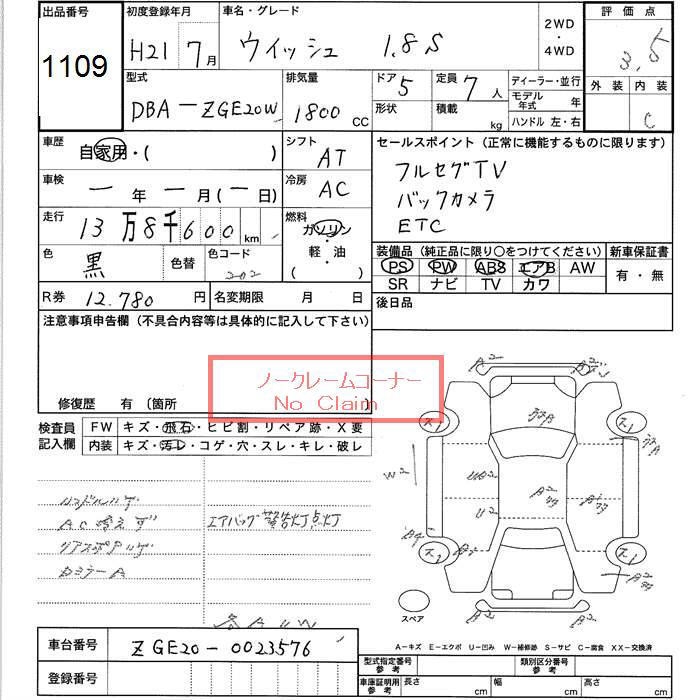 出品番号 初度登録年月 車名・グレード 2WD・4WD 評価点
1109 H21 7月 ウィッシュ 1.8S 3.5
型式 排気量 ドア 5 定員 7人 ディーラー・並行 外装 内装
DBA-ZGE20W 1800 CC 形状 積載 kg モデル年式 年 C
ハンドル 左・右
車歴 自家用・( ) シフト AT セールスポイント (正常に機能するものに限ります)
車検 ー年ー月(ー日) 冷房 AC フルセグTV
バックカメラ
走行 13万8千600km 燃料 ガソリン・軽・油 ( ) ETC
色 黒 色替 色コード 202 装備品 (純正品に限り○をつけてください) 新車保証書
PS PW ABS エアB AW 有・無
SR ナビ TV カワ
R券 12.780円 名変期限 月 日 後日品
注意事項申告欄 (不具合内容等は具体的に記入して下さい)
ノークレームコーナー
No Claim
修復歴 有 〔箇所
検査員記入欄 FW キズ・飛石・ヒビ割・リペア跡・X要
内装 キズ・汚レ・コゲ・穴・スレ・キレ・破レ
エアバッグ警告灯点灯
W2
U2
スペア
A-キズ E-エクボ U-凹み W-補修跡 S-サビ C-腐食 XX-交換済
車台番号 ZGE20-0023576
登録番号
型式指定番号 参考 類別区分番号 参考
車庫証明用 参考 長さ cm 幅 cm 高さ cm